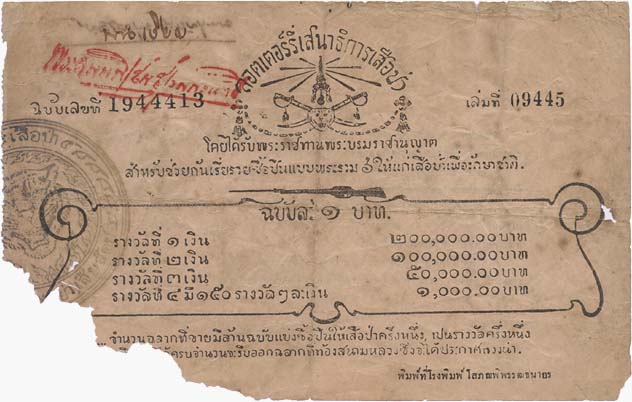 ลอตเตอร์รี่เสนาธิการเสือป่า
ฉบับเลขที่ 1944413
เล่มที่ 09445
โดยได้รับพระราชทานพระบรมราชานุญาต
สำหรับช่วยกันเรี่ยรายซื้อปืนแบบพระราม ๖ ให้แก่เสือป่าเพื่อรักษาชาติ.
ฉบับละ ๑ บาท.
รางวัลที่ ๑ เงิน ๒๐๐,๐๐๐.๐๐ บาท
รางวัลที่ ๒ เงิน ๑๐๐,๐๐๐.๐๐ บาท
รางวัลที่ ๓ เงิน ๕๐,๐๐๐.๐๐ บาท
รางวัลที่ ๔ มี ๑๕๐ รางวัล ๆ ละเงิน ๑,๐๐๐.๐๐ บาท
จำนวนฉลากที่ขายมีล้านฉบับแบ่งซื้อปืนให้เสือป่าครึ่งหนึ่ง, เปนรางวัลครึ่งหนึ่ง
ครบจำนวนจะรีบออกฉลากที่ท้องสนามหลวงซึ่งจะได้ประกาศล่วงน่า.
พิมพ์ที่โรงพิมพ์ โสภณพิพรรฒธนากร